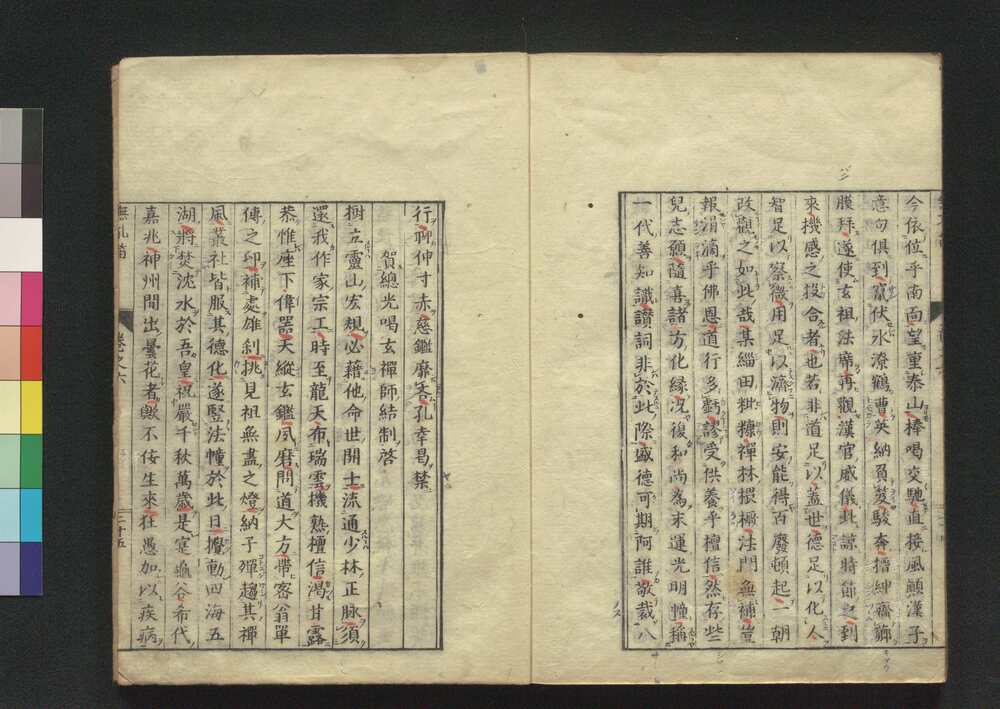 今依位乎南面望重泰山棒喝交馳直接風顛漢子
意句俱到竄伏氷潦鶴曹英納負蕟駿奔搢紳齋
膜拜遂使玄祖法席再觀漢官威儀此諒時節到
來機感之投合者也若非道足以蓋世德足以化人
智足以察微用足以濟物則安能得百廢頓起一朝
改觀之如此哉某緇田粃糠禪林樗法門無補豈
報涓滴乎佛恩道行多謬受供養乎檀信然存些
兒志願隨喜諸方化縁況復和尚為末運光明幢稱
一代善知識讃詞非於此際盛德可期阿誰敬裁八
行聊伸寸赤慈鑑靡吝孔幸曷禁
賀總光喝玄禪師結制啓
樹立靈山宏規必藉他命世開士流通少林正脉須
還我作家宗工時至龍天布瑞雲機熟檀信渴甘露
恭惟座下偉器天縱玄鑑夙磨問道大方帶客翁單
傳之印補處雄刹挑見祖無盡之燈納子彈趨其禪
風叢社皆服其德化遂竪法幢於此日攪動四海五
湖將焚沈水於吾皇祝嚴千秋萬歳是寔龜谷希代
嘉兆神州間出曇花者歟不佞生來狂愚加以疾病
無孔笛
卷之六
二十五